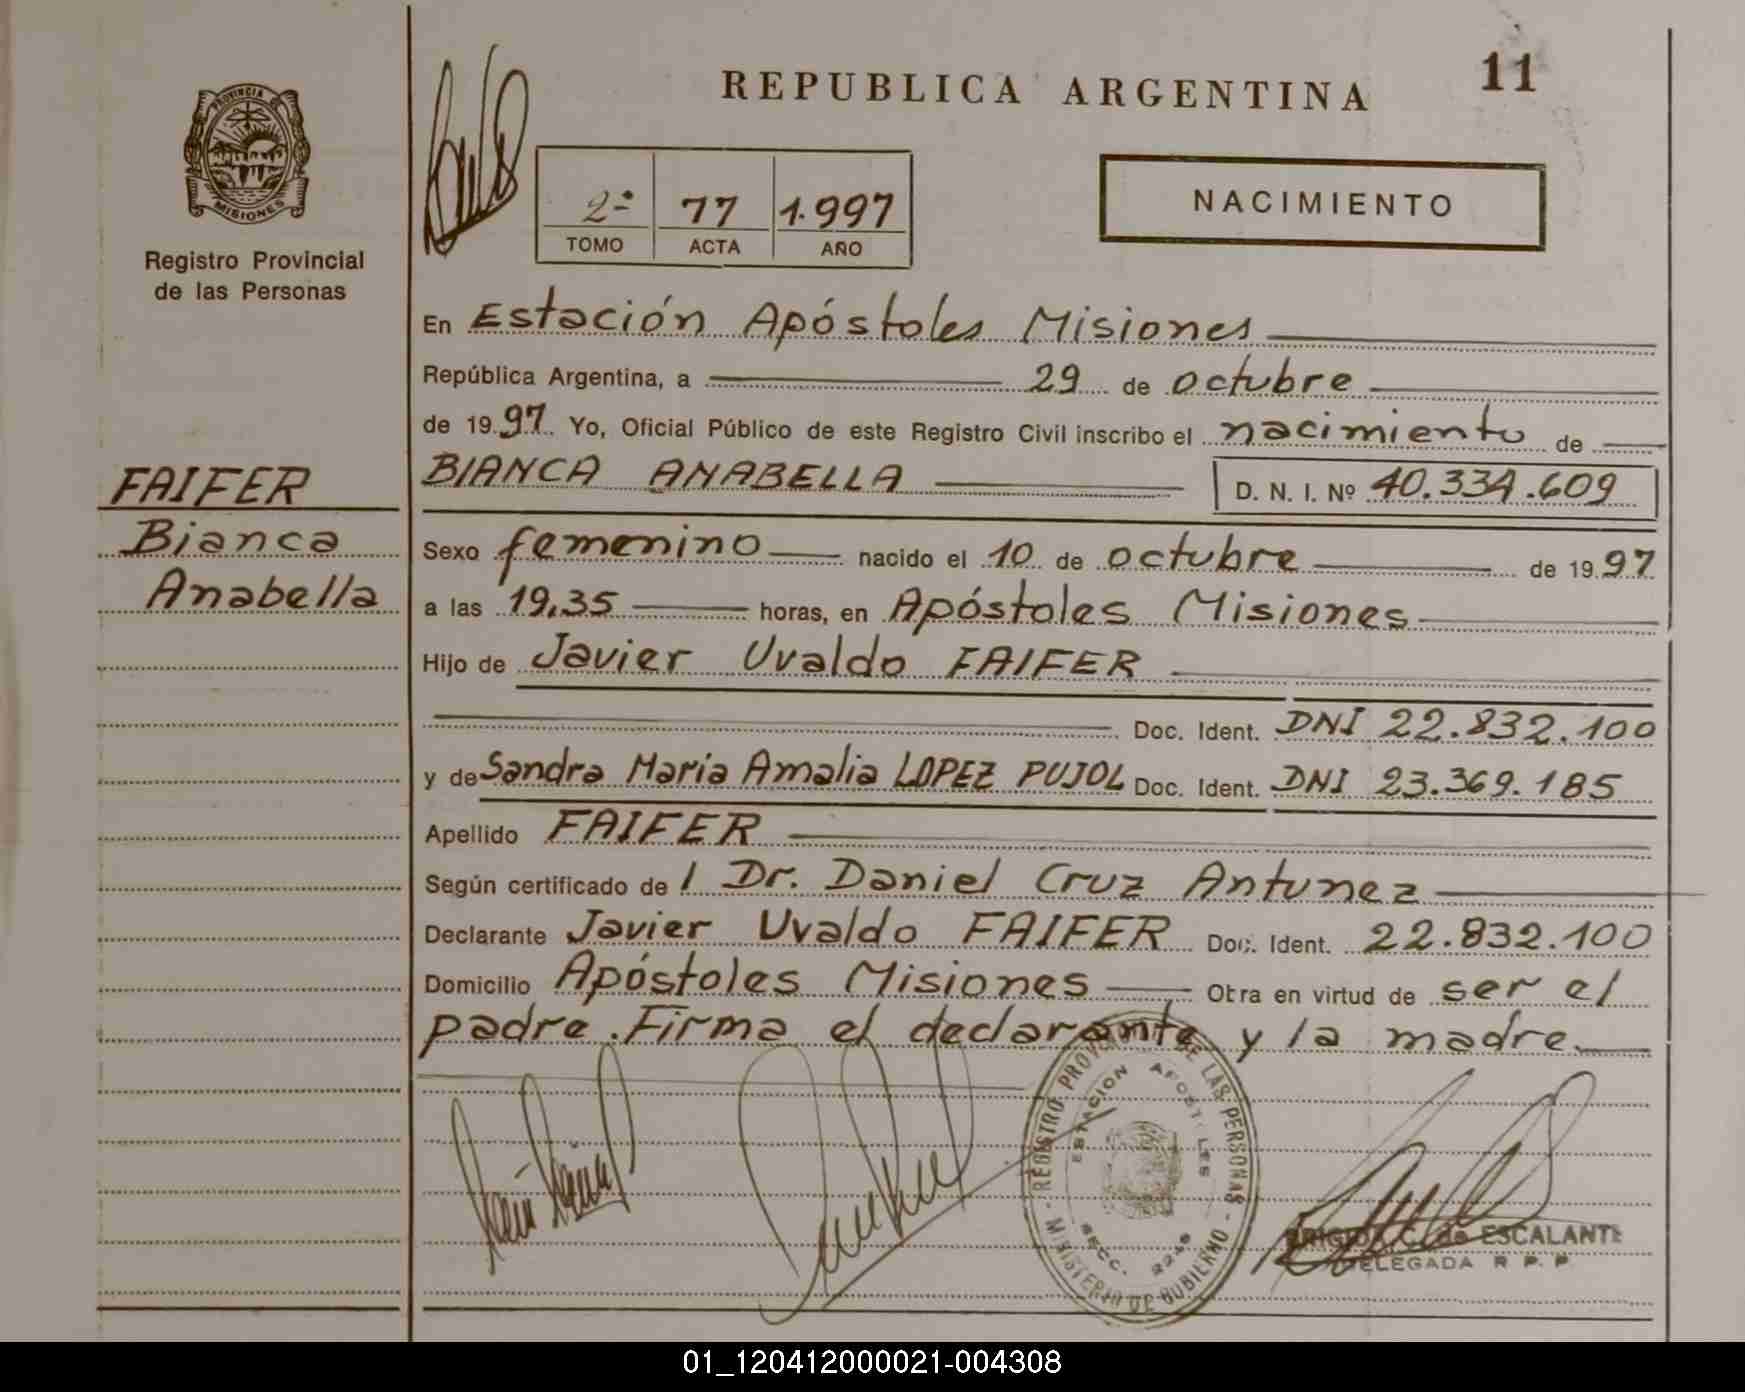 REPUBLICA ARGENTINA
11
PROVINCIA DE
MISIONES
Registro Provincial
de las Personas
2ª 77 1.997
TOMO ACTA AÑO
NACIMIENTO
En Estación Apóstoles Misiones
República Argentina, a 29 de octubre
de 1997. Yo, Oficial Público de este Registro Civil inscribo el nacimiento de
FAIFER
Bianca
Anabella
BIANCA ANABELLA D. N. I. Nº 40.334.609
Sexo femenino nacido el 10 de octubre de 1997
a las 19,35 horas, en Apóstoles Misiones
Hijo de Javier Uvaldo FAIFER
Doc. Ident. DNI 22.832.100
y de Sandra Maria Amalia LOPEZ PUJOL Doc. Ident. DNI 23.369.185
Apellido FAIFER
Según certificado de l Dr. Daniel Cruz Antunez
Declarante Javier Uvaldo FAIFER Doc. Ident. 22.832.100
Domicilio Apóstoles Misiones Otra en virtud de ser el
padre. Firma el declarante y la madre.
REGISTRO PROVINCIAL DE LAS PERSONAS - MINISTERIO DE GOBIERNO -
ESTACION APOSTOLES
SECC. 2246
BRIGIDA C. de ESCALANTE
DELEGADA R. P. P.
01_120412000021-004308